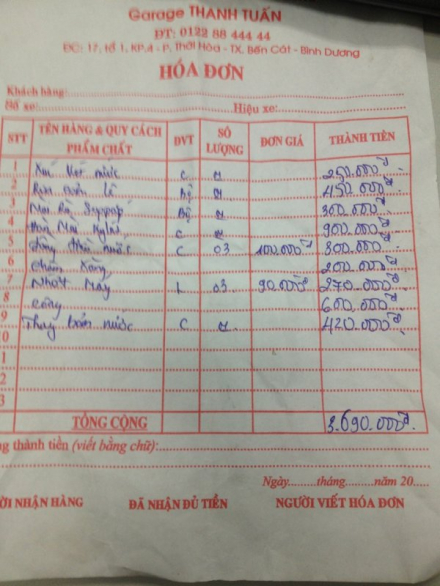 Garage THANH TUẤN
ĐT: 0122 88 444 44
ĐC: 17, tổ 1, KP.4 - P. Thới Hòa - TX. Bến Cát - Bình Dương
HÓA ĐƠN
Khách hàng:
Số xe: Hiệu xe:
STT TÊN HÀNG & QUY CÁCH PHẨM CHẤT ĐVT SỐ LƯỢNG ĐƠN GIÁ THÀNH TIỀN
1 nước C 250.000đ
2 Bộ 450.000đ
3 Bộ 300.000đ
4 900.000đ
5 nước C 03 100.000đ 300.000đ
6 xăng 200.000đ
7 Nhớt Máy L 03 90.000đ 270.000đ
8 Công 600.000đ
9 Thay bơm nước C 420.000đ
0
1
2
3
TỔNG CỘNG 3.690.000đ
ng thành tiền (viết bằng chữ):
Ngày tháng năm 20
ỜI NHẬN HÀNG ĐÃ NHẬN ĐỦ TIỀN NGƯỜI VIẾT HÓA ĐƠN